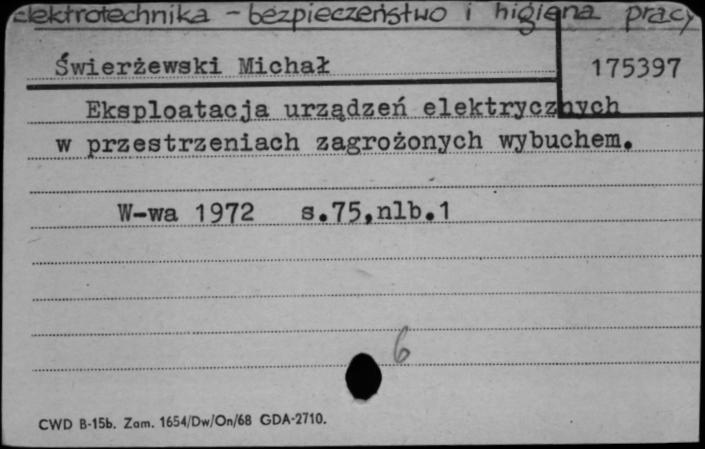 elektrotechnika – bezpieczeństwo i higiena pracy
Świerżewski Michał
175397
Eksploatacja urządzeń elektrycznych
w przestrzeniach zagrożonych wybuchem.
W-wa 1972 s.75,nlb.1
6
CWD B-15b. Zam. 1654/Dw/On/68 GDA-2710.